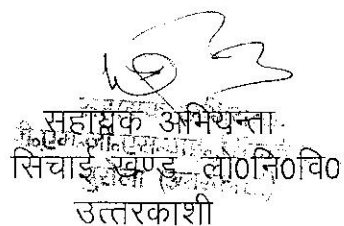 सहायक अभियन्ता
सिंचाई खण्ड लो0नि0वि0
उत्तरकाशी